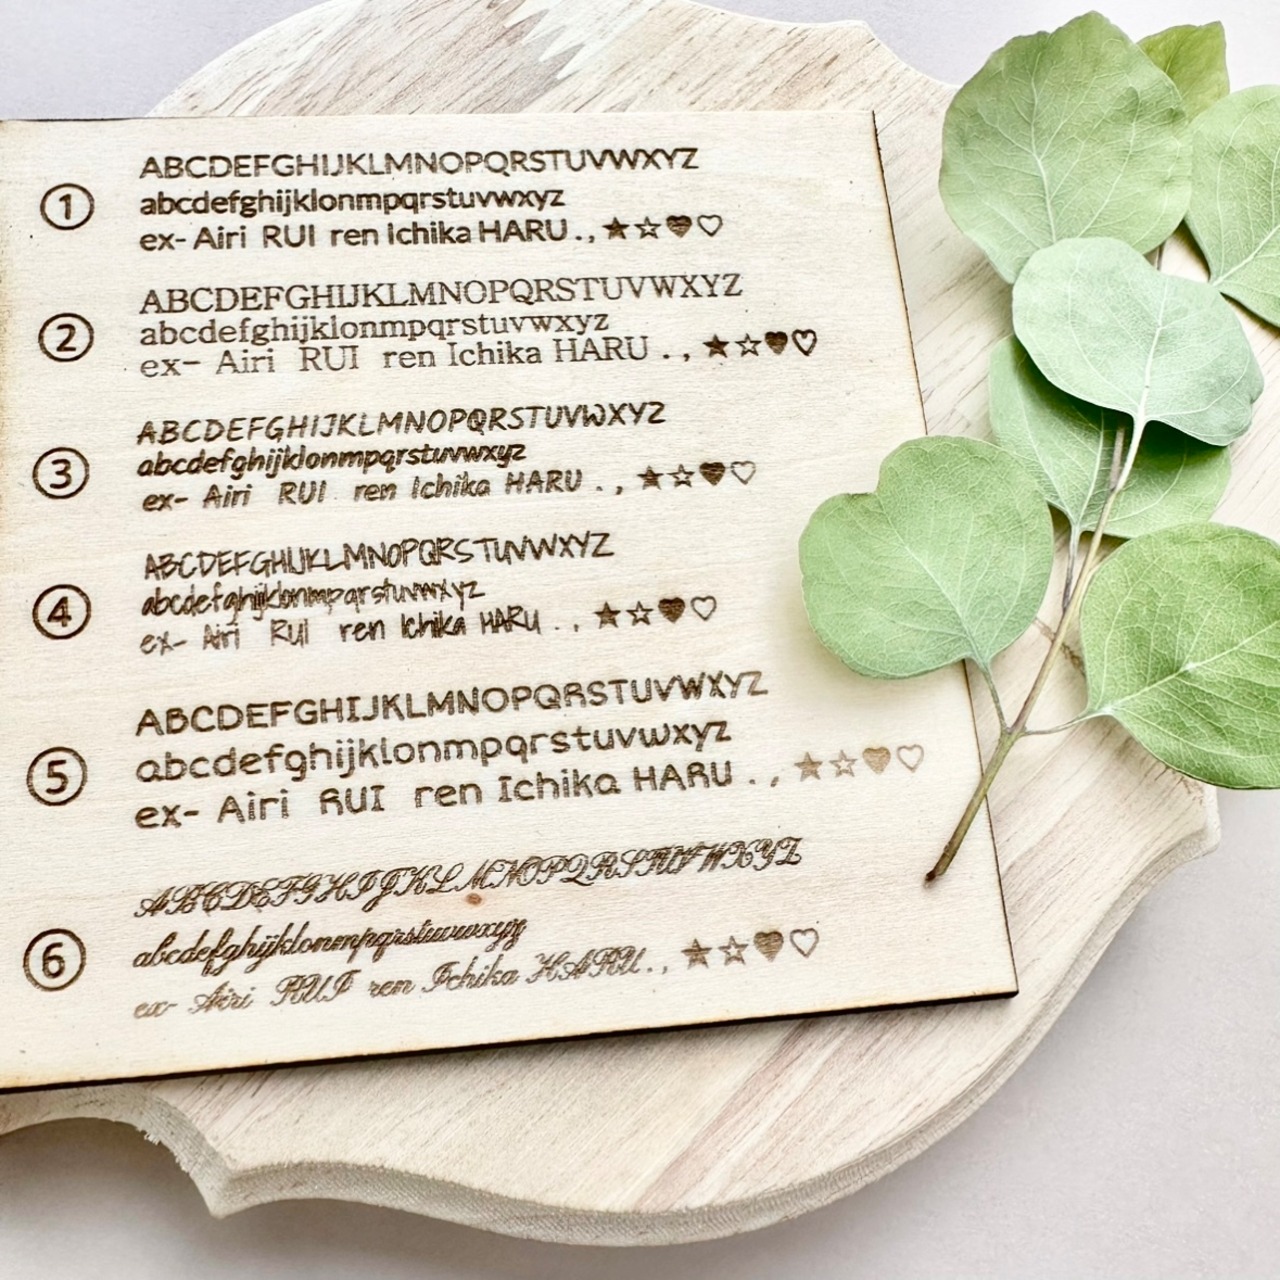 ① ABCDEFGHIJKLMNOPQRSTUVWXYZ
abcdefghijklonmpqrstuvwxyz
ex- Airi RUI ren Ichika HARU ., ★☆♥♡
② ABCDEFGHIJKLMNOPQRSTUVWXYZ
abcdefghijklonmpqrstuvwxyz
ex- Airi RUI ren Ichika HARU ., ★☆♥♡
③ ABCDEFGHIJKLMNOPQRSTUVWXYZ
abcdefghijklonmpqrstuvwxyz
ex- Airi RUI ren Ichika HARU ., ★☆♥♡
④ ABCDEFGHIJKLMNOPQRSTUVWXYZ
abcdefghijklonmpqrstuvwxyz
ex- Airi RUI ren Ichika HARU ., ★☆♥♡
⑤ ABCDEFGHIJKLMNOPQRSTUVWXYZ
abcdefghijklonmpqrstuvwxyz
ex- Airi RUI ren Ichika HARU ., ★☆♥♡
⑥ ABCDEFGHIJKLMNOPQRSTUVWXYZ
abcdefghijklonmpqrstuvwxyz
ex- Airi RUI ren Ichika HARU ., ★☆♥♡